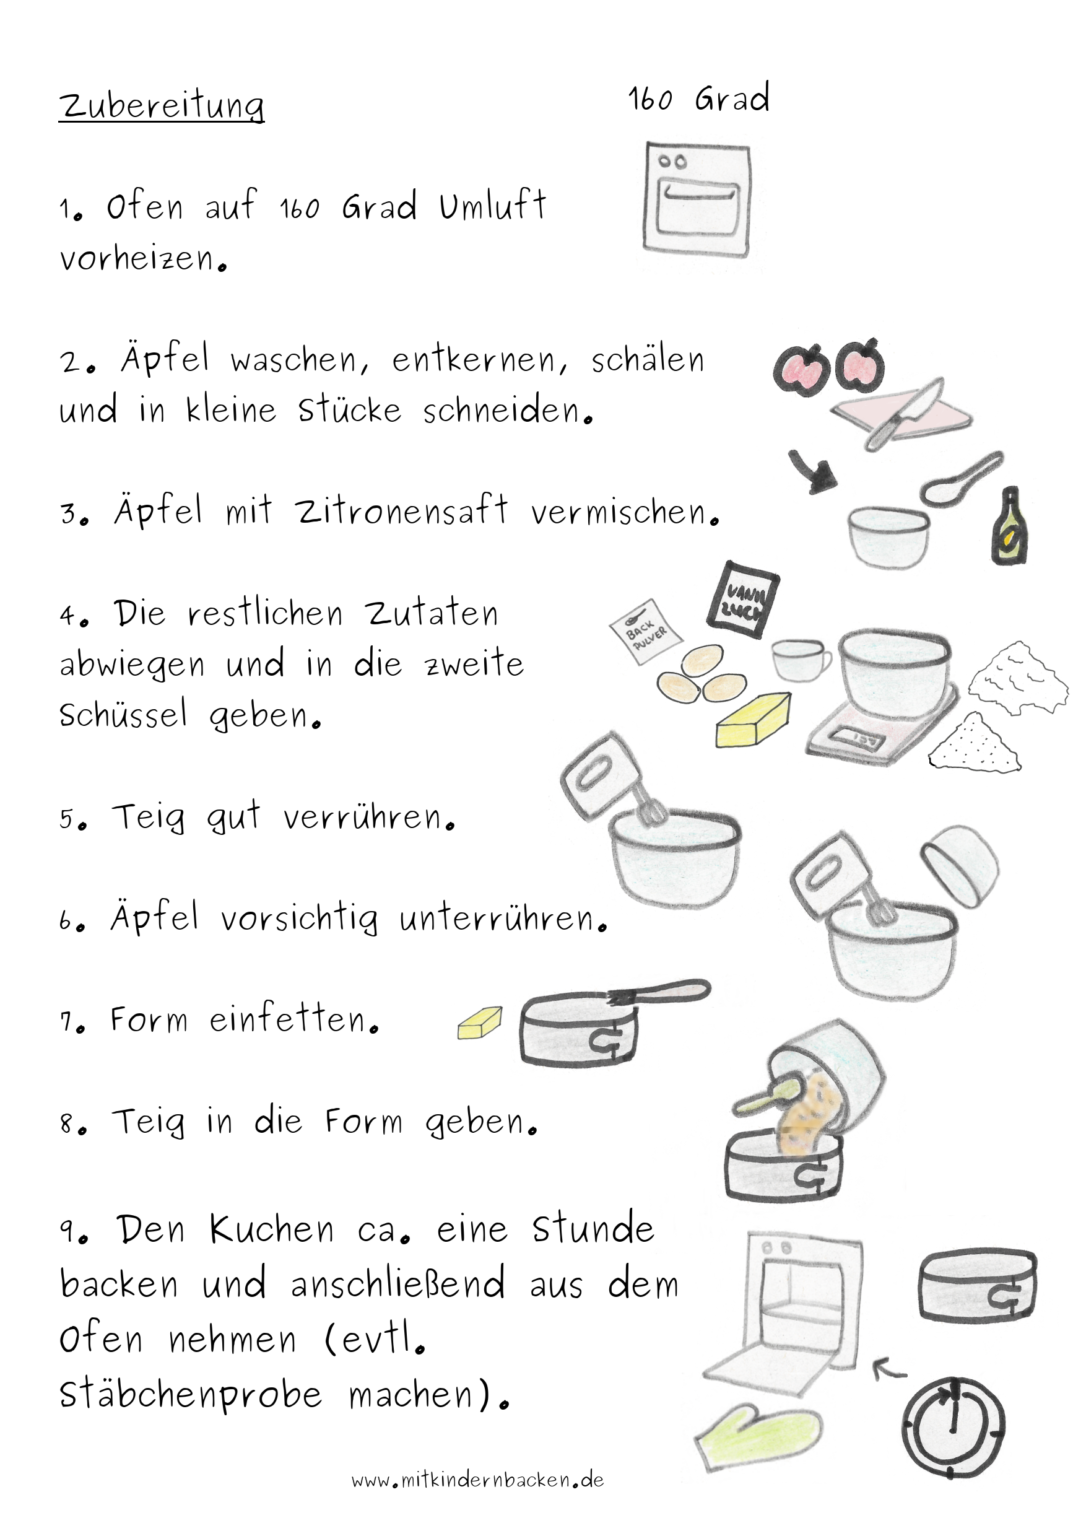 Zubereitung
160 Grad
1. Ofen auf 160 Grad Umluft
vorheizen.
2. Äpfel waschen, entkernen, schälen
und in kleine Stücke schneiden.
3. Äpfel mit Zitronensaft vermischen.
VANI
ZUCK
BACK
PULVER
4. Die restlichen Zutaten
abwiegen und in die zweite
Schüssel geben.
5. Teig gut verrühren.
6. Äpfel vorsichtig unterrühren.
7. Form einfetten.
8. Teig in die Form geben.
9. Den Kuchen ca. eine Stunde
backen und anschließend aus dem
Ofen nehmen (evtl.
Stäbchenprobe machen).
www.mitkindernbacken.de